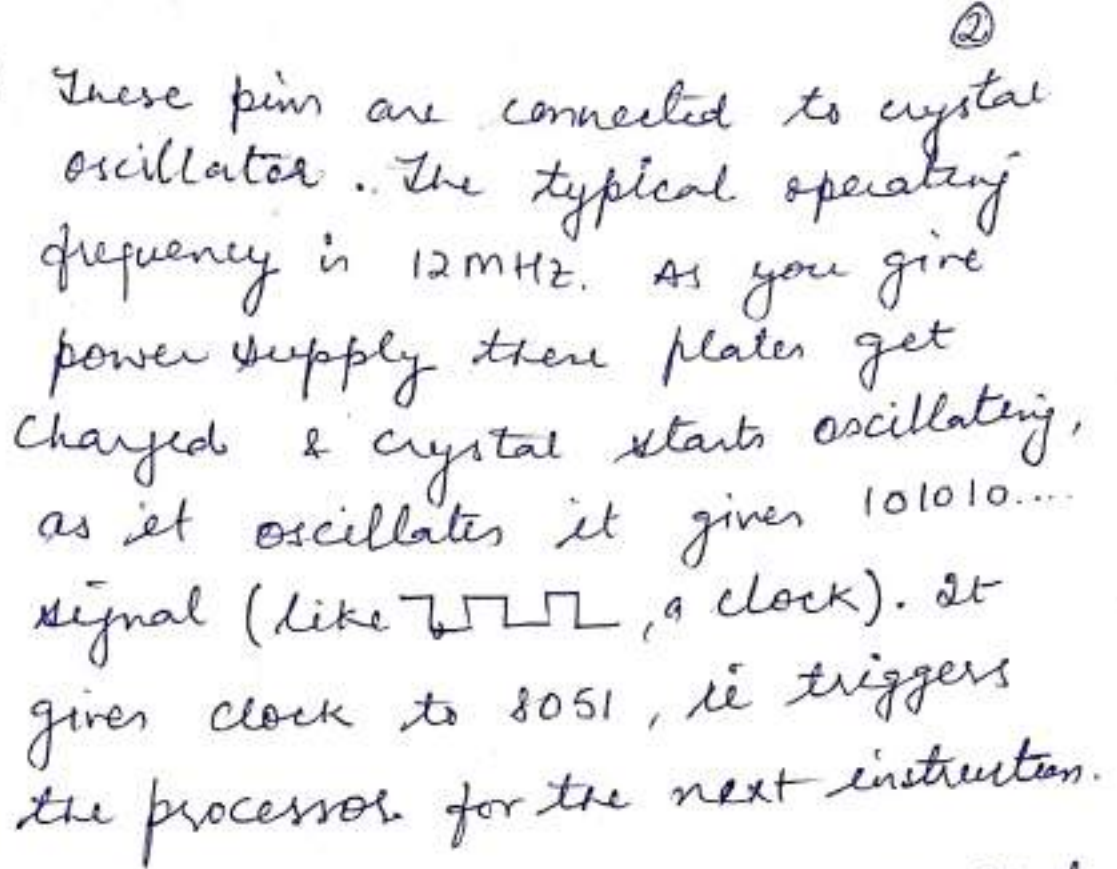 2
These pins are connected to crystal
oscillator. The typical operating
frequency is 12MHZ. As you give
power supply these plates get
Charged & crystal starts oscillating,
as it oscillates it gives 101010....
signal (like , a clock). It
gives clock to 8051, ie triggers
the processor for the next instruction.